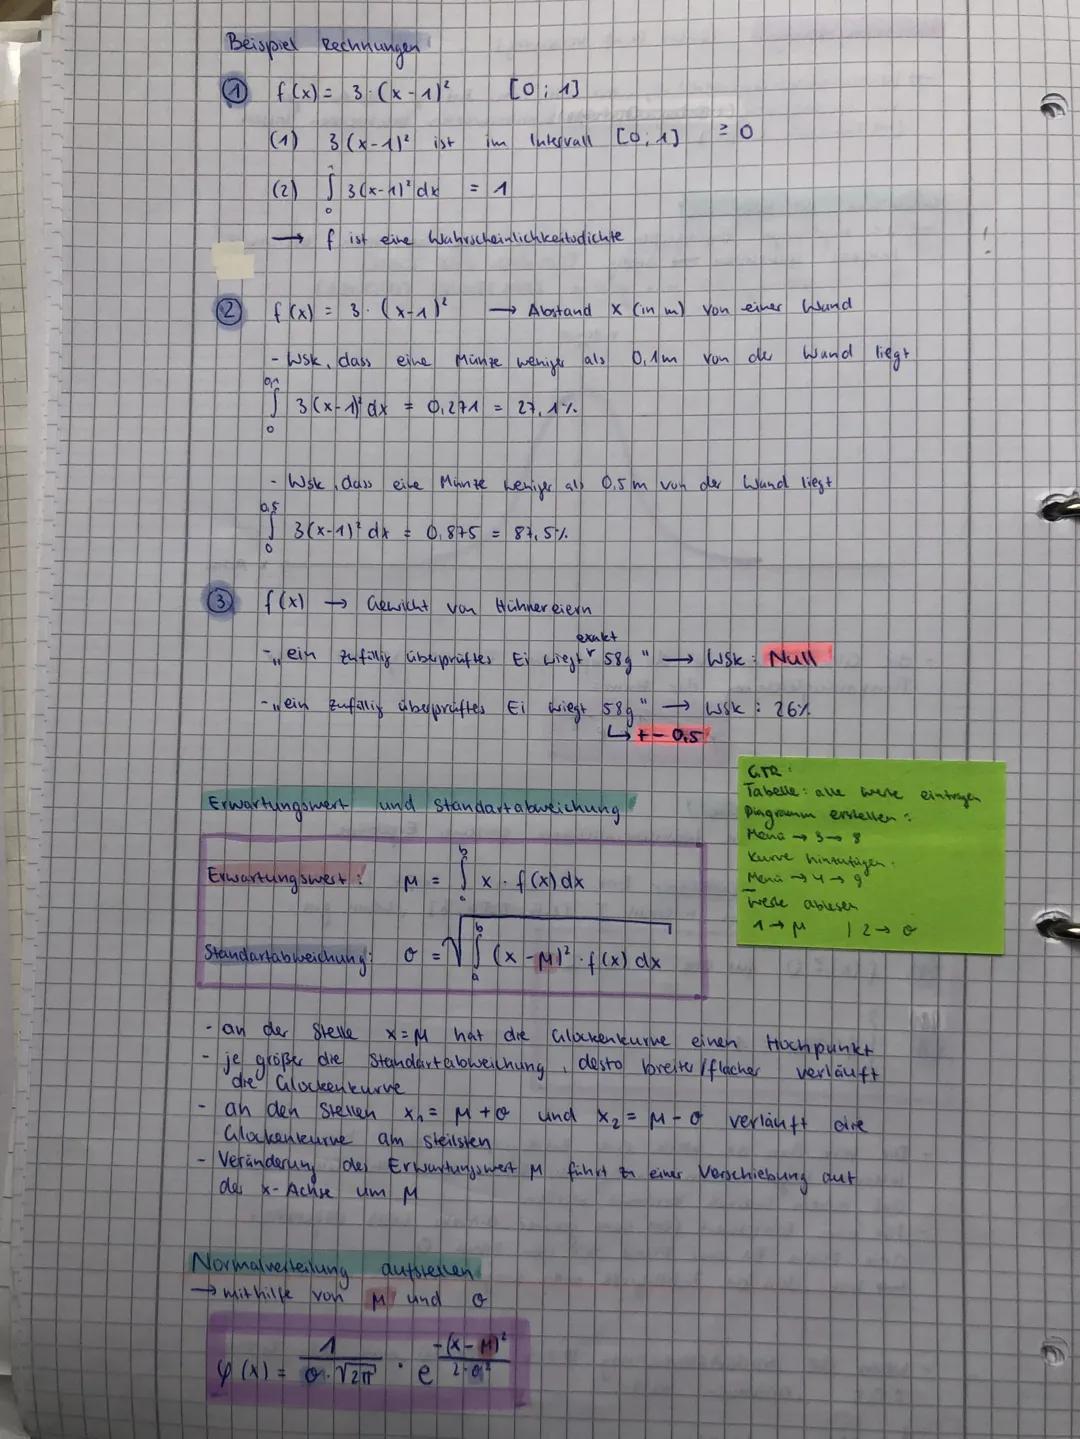 Beispiel Rechnungen
① f(x) = 3·(x-1)² [0; 1]
(1) 3(x-1)² ist im Intervall [0; 1] ≥ 0
(2) ∫₀¹ 3(x-1)² dx = 1
→ f ist eine Wahrscheinlichkeitsdichte
② f(x) = 3·(x-1)² → Abstand x (in m) von einer Wand
- Wsk, dass eine Münze weniger als 0,1m von der Wand liegt
∫₀^0,1 3(x-1)² dx = 0,271 = 27,1%
- Wsk, dass eine Münze weniger als 0,5m von der Wand liegt
∫₀^0,5 3(x-1)² dx = 0,875 = 87,5%
③ f(x) → Gewicht von Hühnereiern
exakt
- „ein zufällig überprüftes Ei wiegt 58g" → Wsk: Null
- „ein zufällig überprüftes Ei wiegt 58g" → Wsk: 26%
↳ +- 0,5
Erwartungswert und Standartabweichung
Erwartungswert: μ = ∫ₐᵇ x · f(x) dx
Standartabweichung: σ = √(∫ₐᵇ (x-μ)² · f(x) dx)
GTR:
Tabelle: alle werte eintragen
Diagramm erstellen:
Menü → 3 → 8
Kurve hinzufügen:
Menü → 4 → 9
Werte ablesen
1 → μ | 2 → σ
- an der Stelle x = μ hat die Glockenkurve einen Hochpunkt
- je größer die Standartabweichung, desto breiter/flacher verläuft
die Glockenkurve
- an den Stellen x₁ = μ + σ und x₂ = μ - σ verläuft die
Glockenkurve am steilsten
- Veränderung des Erwartungswert μ führt zu einer Verschiebung auf
der x-Achse um μ
Normalverteilung aufstellen
→ mithilfe von μ und σ
φ(x) = 1/(σ·√2π) · e^(-(x-μ)²/(2·σ²))